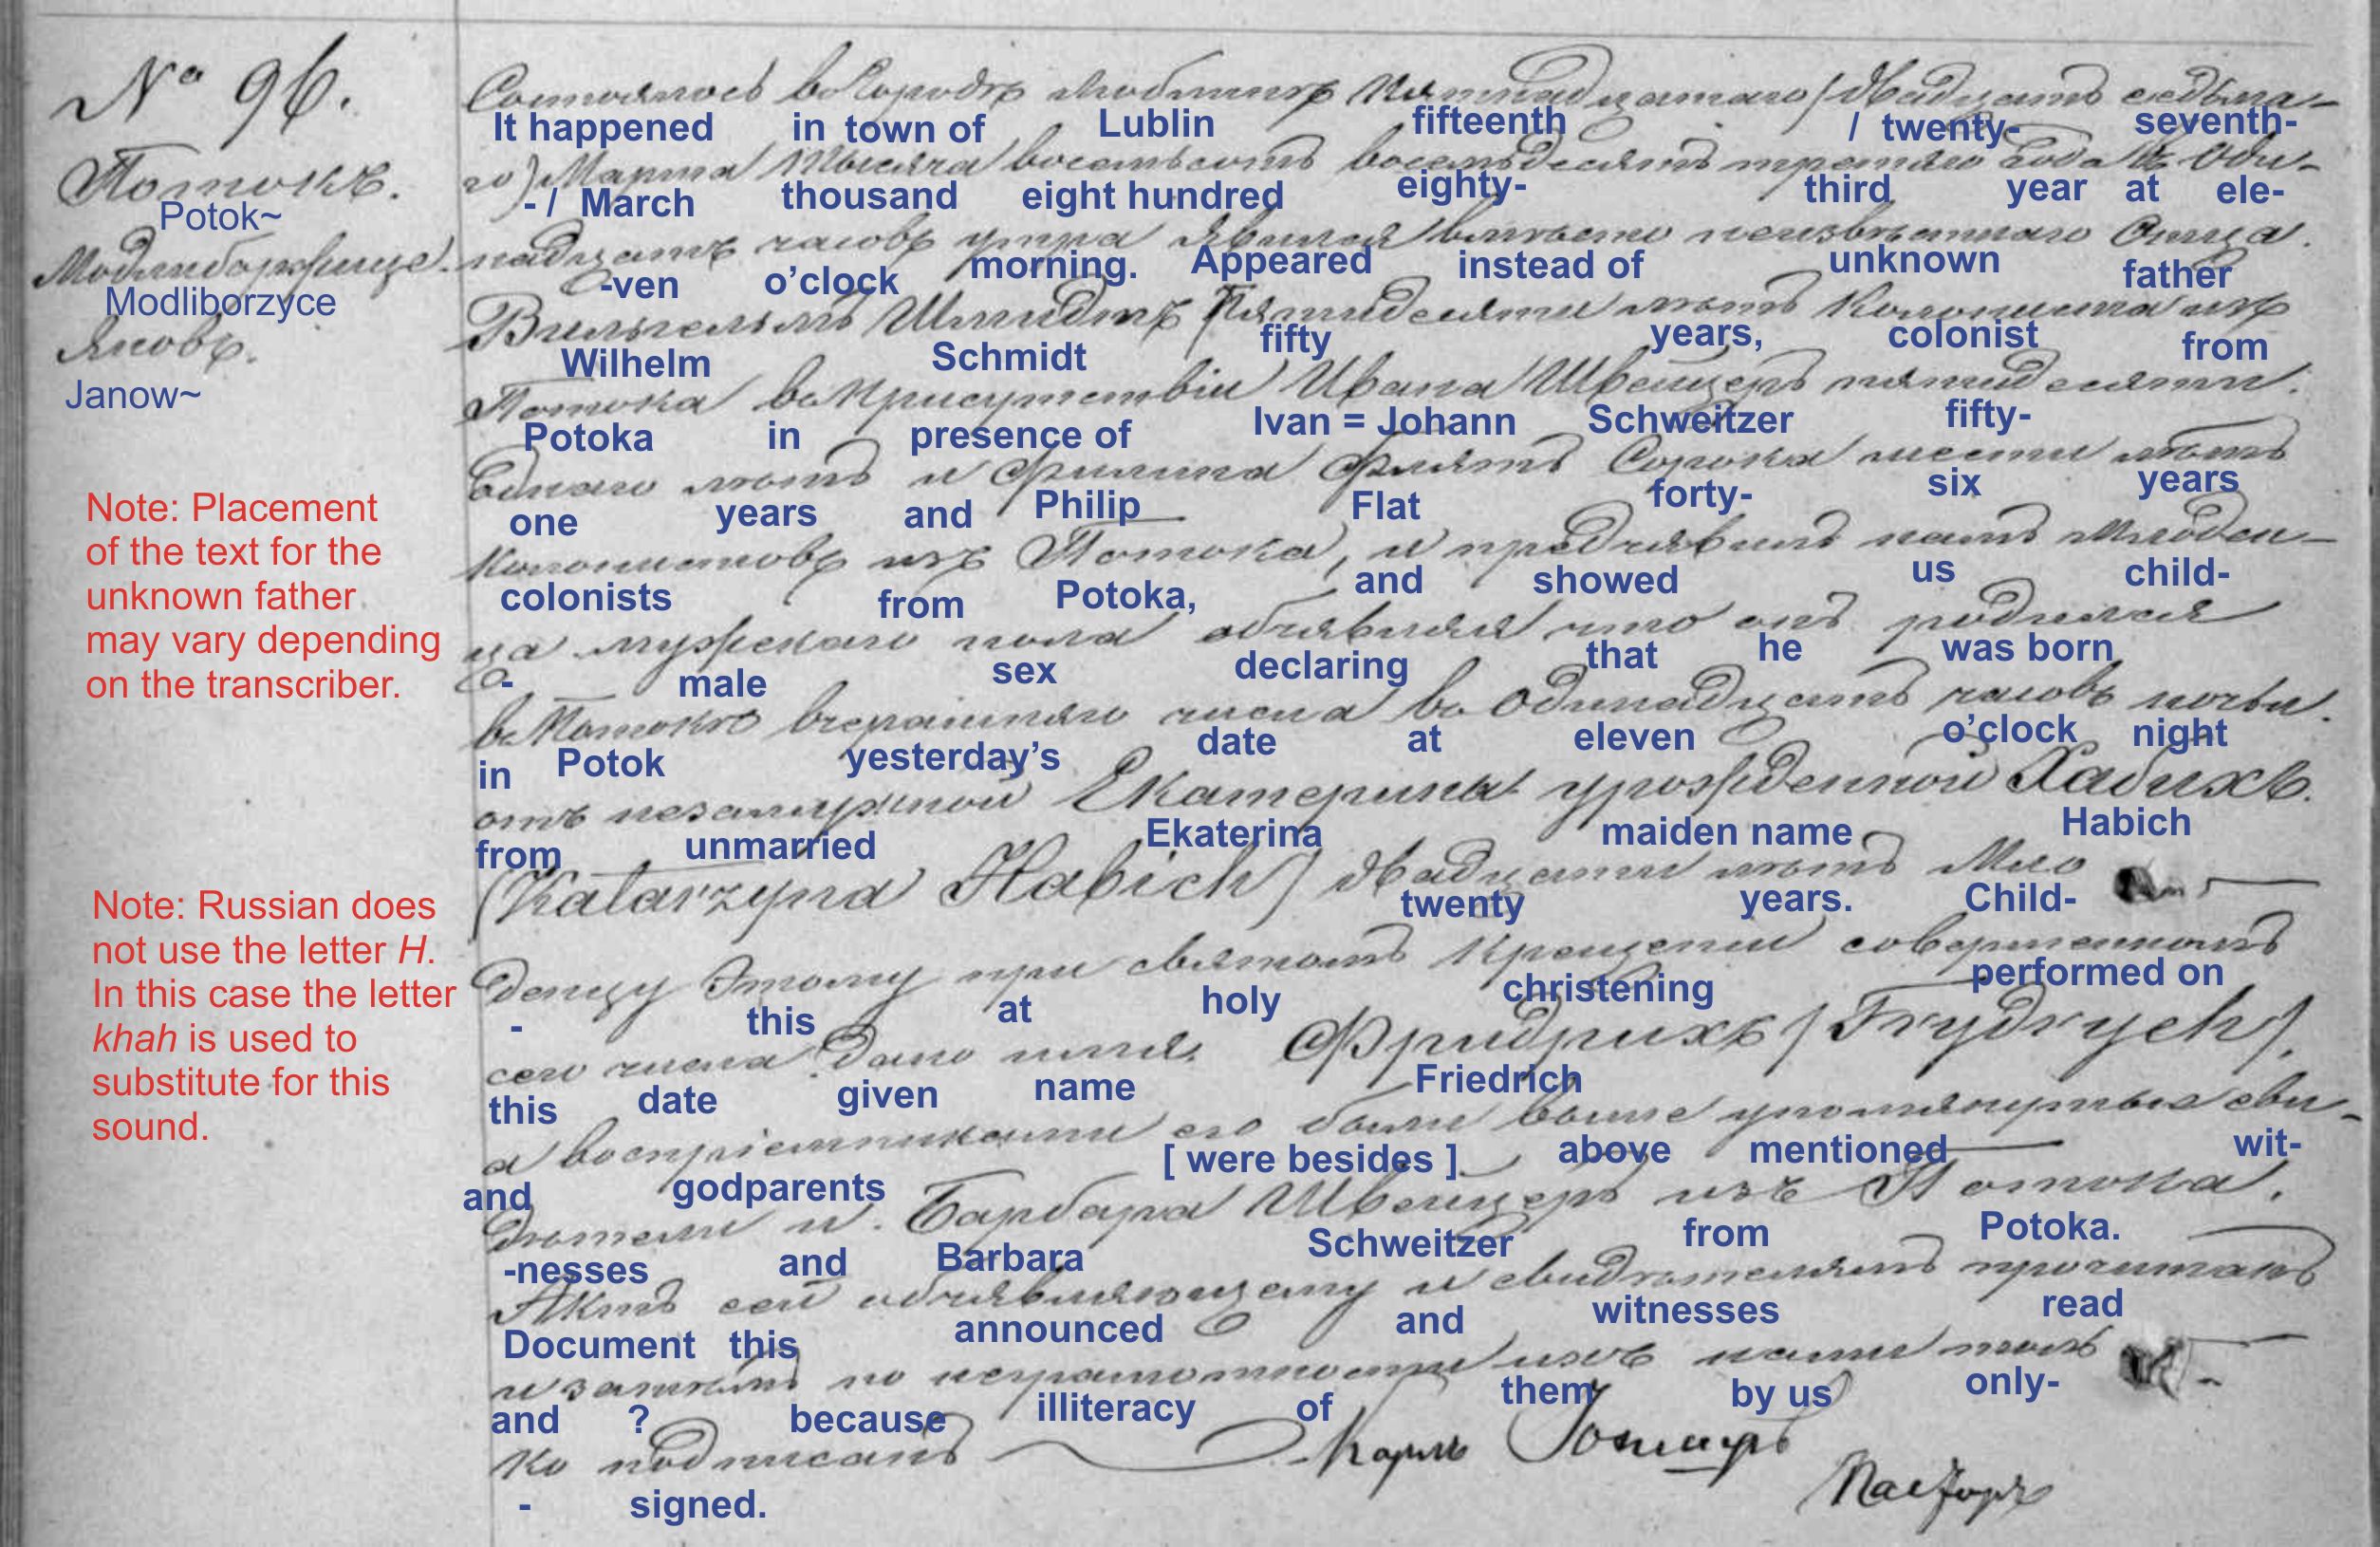 № 96.
Потокъ.
Potok~
Модлиборжице.
Modliborzyce
Яновъ.
Janow~
Note: Placement
of the text for the
unknown father
may vary depending
on the transcriber.
Note: Russian does
not use the letter H.
In this case the letter
khah is used to
substitute for this
sound.
Состоялось въ Городѣ Люблинѣ Пятнадцатаго / Двадцать седьма-
It happened in town of Lublin fifteenth / twenty- seventh-
го) Марта Тысяча восемьсотъ восемьдесятъ третьяго года въ Оди-
- / March thousand eight hundred eighty- third year at ele-
надцать часовъ утра Явился вмѣсто неизвѣстнаго Отца.
-ven o’clock morning. Appeared instead of unknown father
Вильгельмъ Шмидтъ Пятидесяти лѣтъ Колониста изъ
Wilhelm Schmidt fifty years, colonist from
Потока въ присутствіи Ивана Швейцеръ пятидесяти.
Potoka in presence of Ivan = Johann Schweitzer fifty-
Однаго лѣтъ и Филипа Флятъ Сорока шести лѣтъ
one years and Philip Flat forty- six years
Колонистовъ изъ Потока, и предъявилъ намъ Младен-
colonists from Potoka, and showed us child-
ца мужескаго пола объявляя что онъ родился
- male sex declaring that he was born
въ Потокѣ вчерашняго числа въ Одинадцать часовъ ночьи.
in Potok yesterday’s date at eleven o’clock night
отъ незамужной Екатерины урожденной Хабихъ.
from unmarried Ekaterina maiden name Habich
(Katarzyna Habich) Двадцати лѣтъ Мла
twenty years. Child-
денцу Этому при святомъ Крещеніи совершенномъ
- this at holy christening performed on
сего числа Дано имя. Фридрихъ (Frydrych).
this date given name Friedrich
а воспріемниками его были выше упомянутые сви-
and godparents [ were besides ] above mentioned wit-
дѣтели и. Барбара Швейцеръ изъ Потока.
-nesses and Barbara Schweitzer from Potoka.
Актъ сей объявляющему и свидѣтелямъ прочитанъ
Document this announced and witnesses read
и по неграмотности ихъ нами толь
and ? because illiteracy of them by us only-
ко подписанъ Карлъ
- signed.
Пасторъ